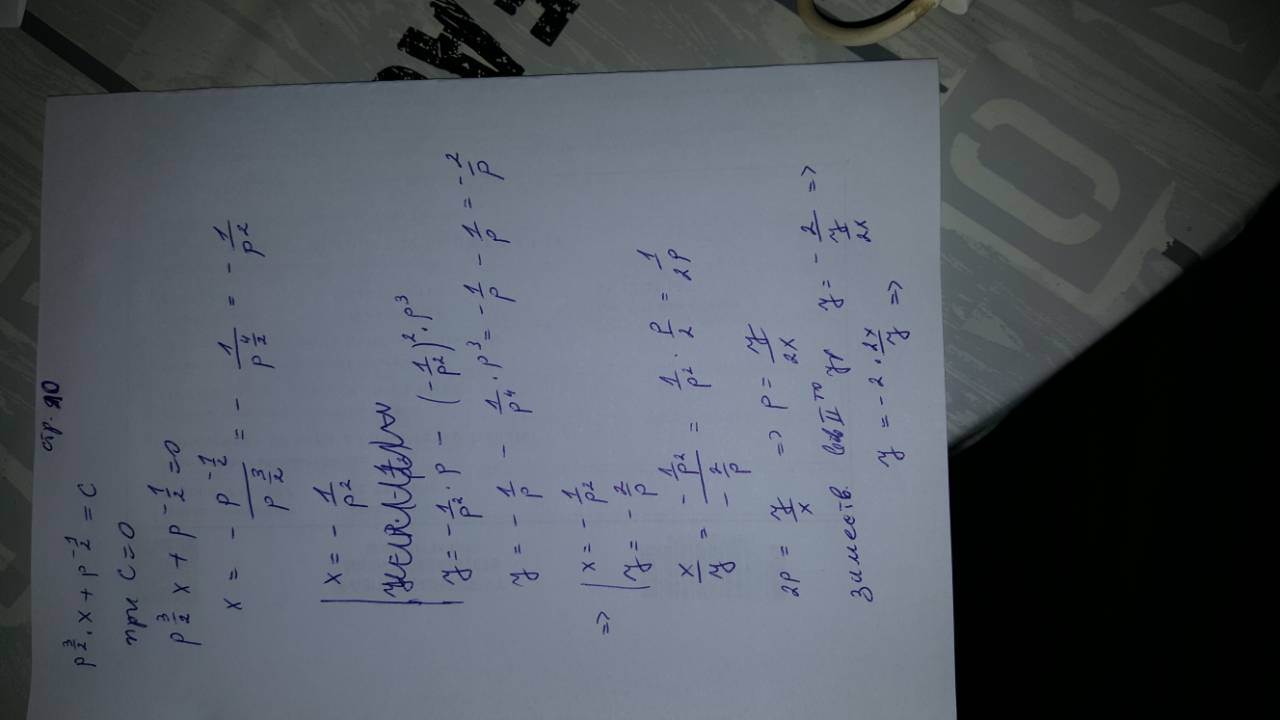 стр. 20
p^{3/2} . x + p^{-1/2} = C
при C = 0
p^{3/2} x + p^{-1/2} = 0
x = - p^{-1/2} / p^{3/2} = - 1 / p^{4/2} = - 1 / p^2
x = - 1 / p^2
y = - 1/p^2 . p - (- 1/p^2)^2 . p^3
y = - 1/p - 1/p^4 . p^3 = - 1/p - 1/p = -2/p
=> | x = - 1/p^2
y = - 2/p
x/y = (- 1/p^2) / (- 2/p) = 1/p^2 . p/2 = 1/2p
2p = y/x => p = y/2x
заместв. във II то ур y = - 2 / (y/2x) =>
y = - 2 . 2x/y =>